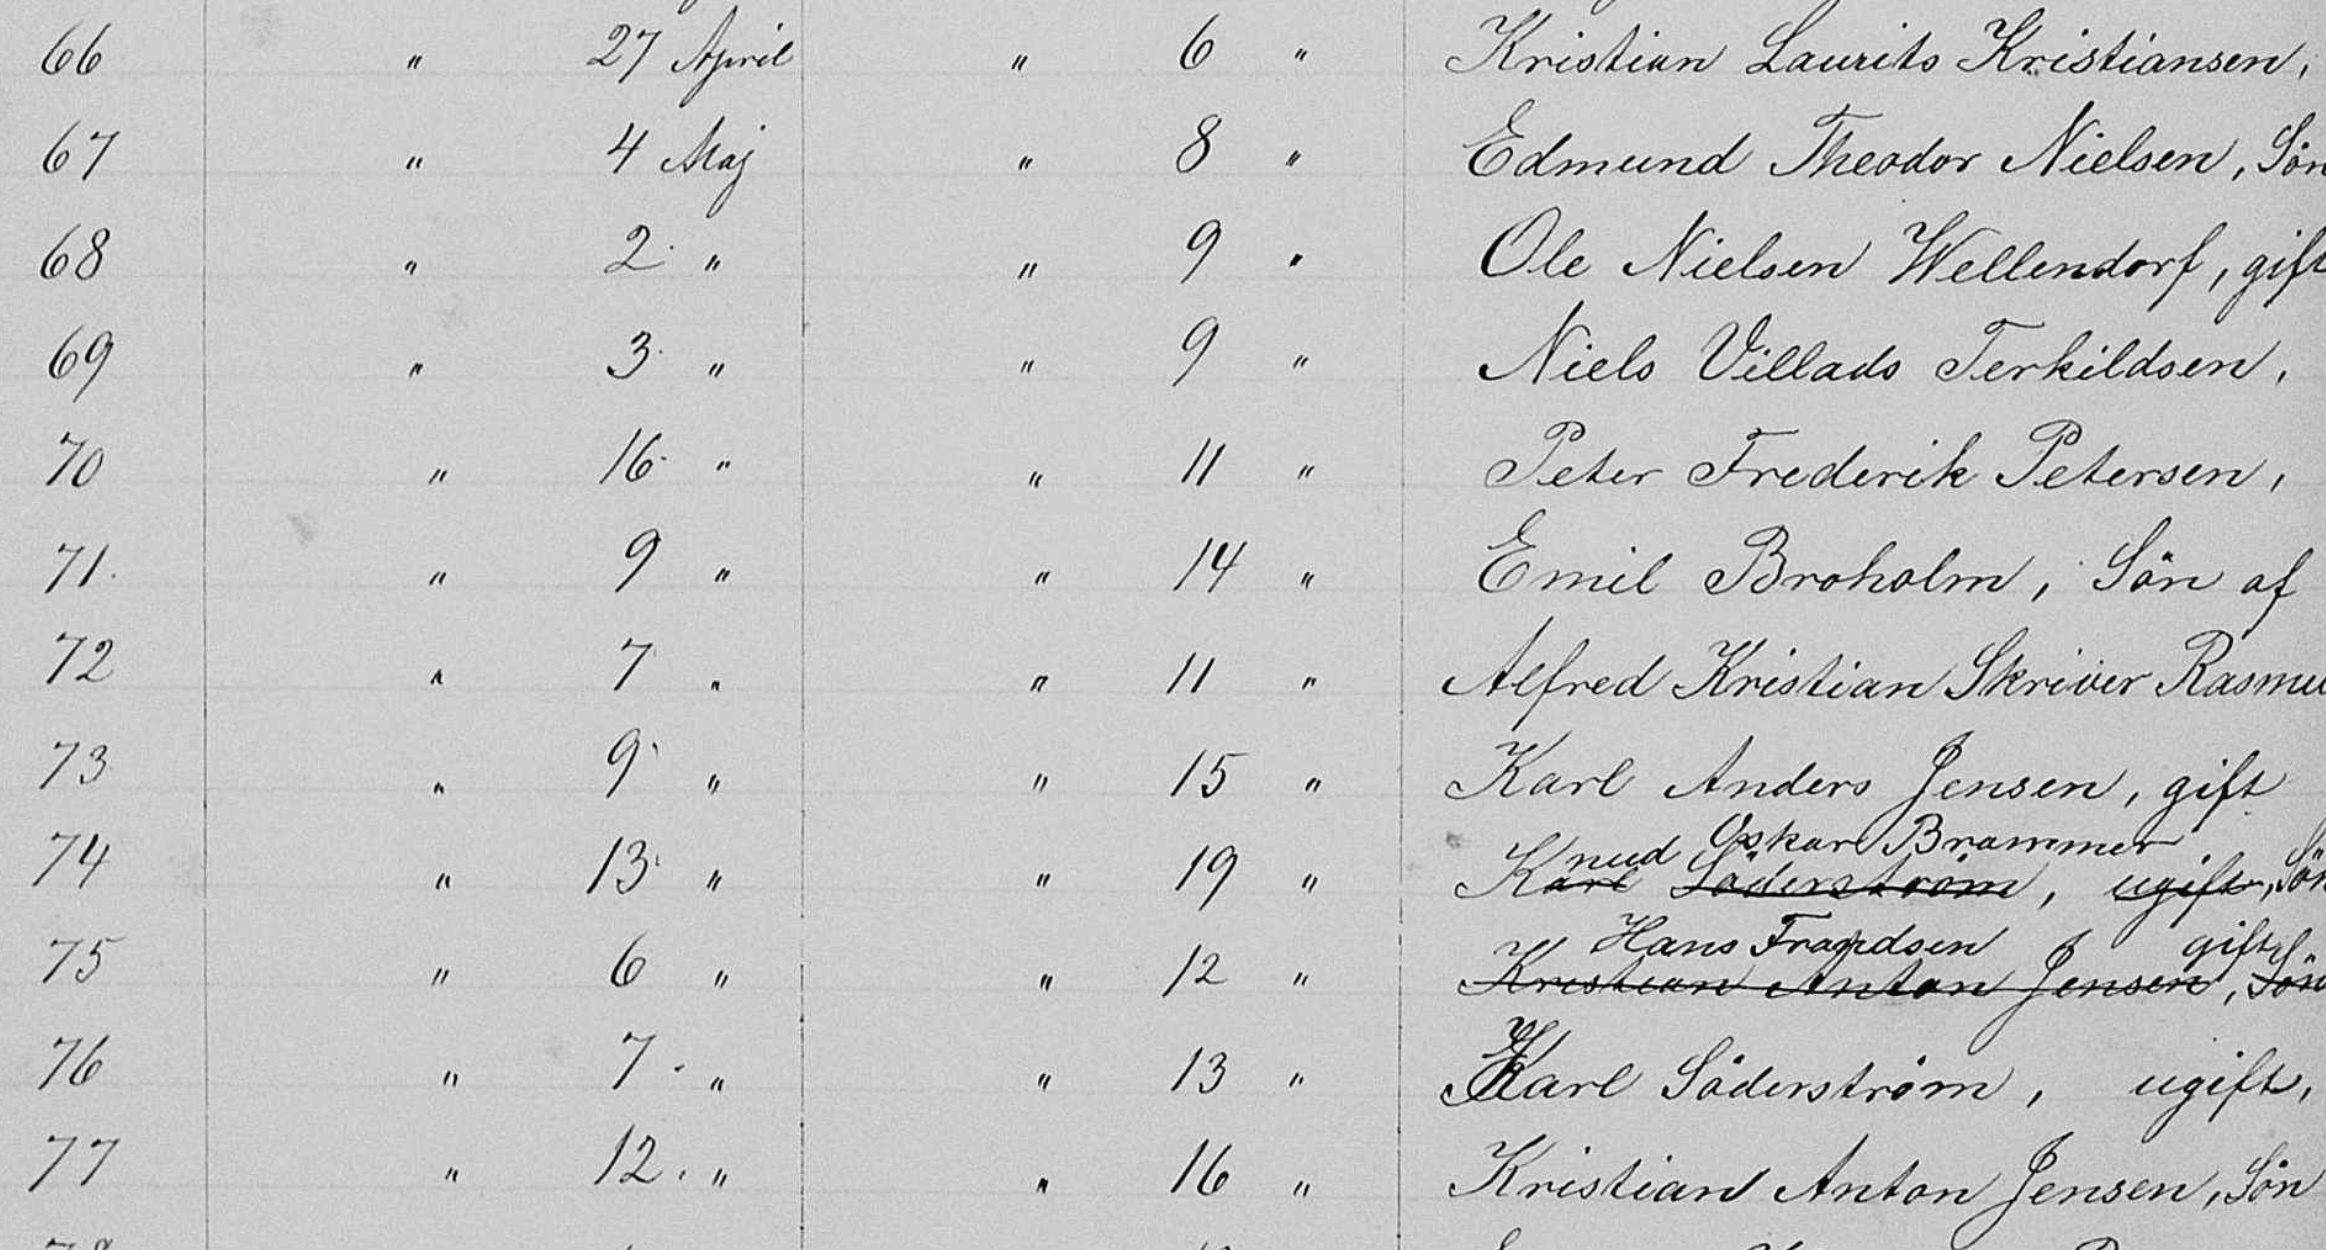 66 " 27 April " 6 " Kristian Laurits Kristiansen,
67 " 4 Maj " 8 " Edmund Theodor Nielsen, Sön
68 " 2 " " 9 " Ole Nielsen Wellendorf, gift
69 " 3 " " 9 " Niels Villads Terkildsen,
70 " 16 " " 11 " Peter Frederik Petersen,
71. " 9 " " 14 " Emil Broholm, Sön af
72 " 7 " " 11 " Alfred Kristian Skriver Rasmu
73 " 9 " " 15 " Karl Anders Jensen, gift
nud Oskar Brammer
74 " 13 " " 19 " Karl Söderström, ugift, Sön
Hans Frandsen gift
75 " 6 " " 12 " Kristian Anton Jensen, Sön
76 " 7 " " 13 " Karl Söderström, ugift,
77 " 12 " " 16 " Kristian Anton Jensen, Sön